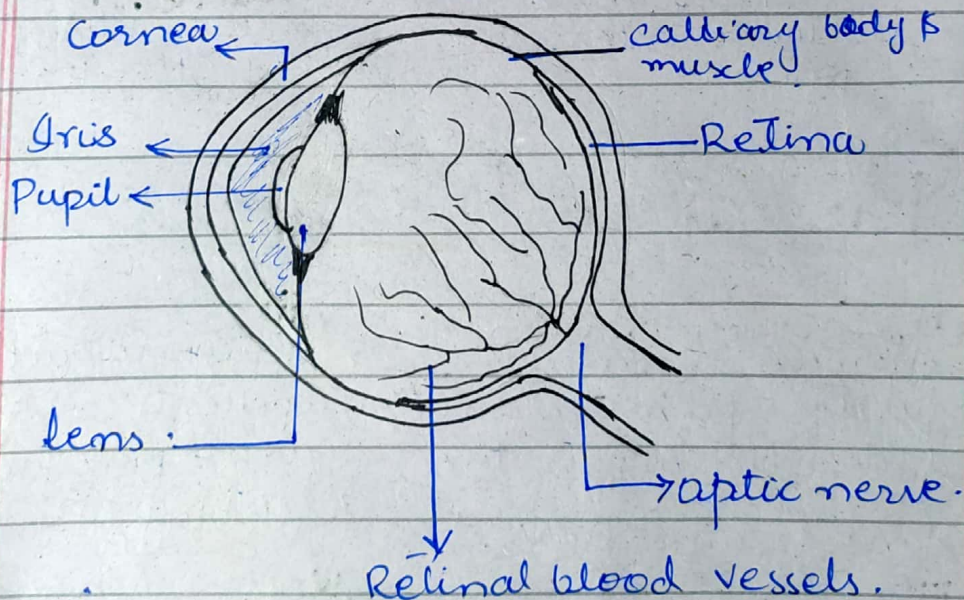 Cornea
calliary body &
muscle
Iris
Retina
Pupil
lens
aptic nerve.
Retinal blood vessels.